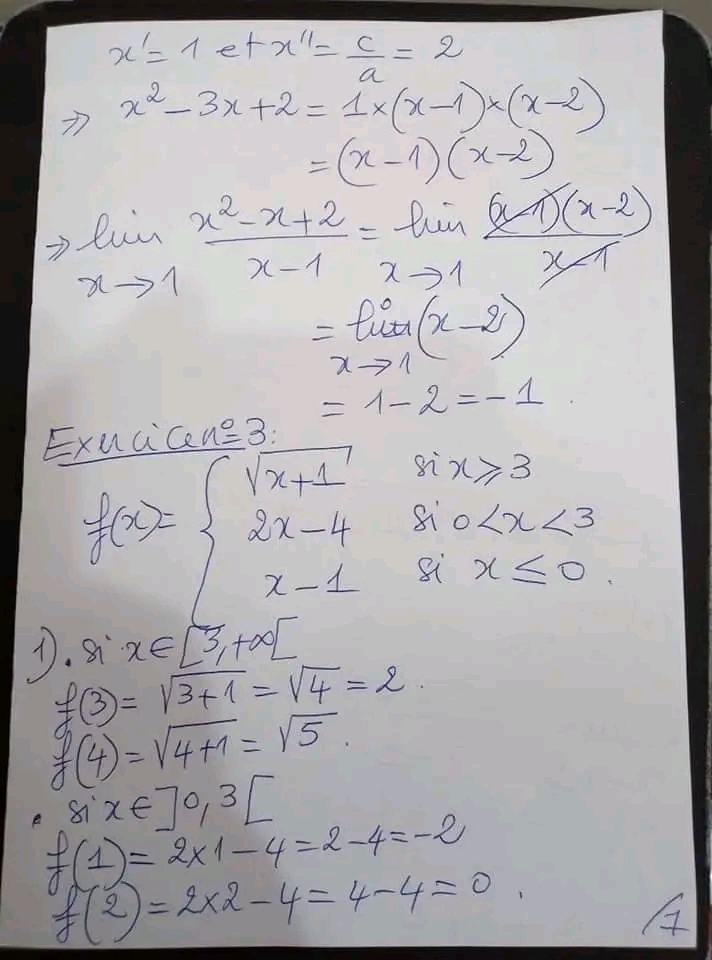 x' = 1 et x'' = c/a = 2
⇒ x² - 3x + 2 = 1×(x-1)×(x-2)
= (x-1)(x-2)
⇒ lim x²-x+2 / x-1 = lim (x-1)(x-2) / x-1
x→1 x→1
= lim (x-2)
x→1
= 1-2 = -1.
Exercice n°3:
f(x) = { √x+1 si x ≥ 3
2x-4 si 0 < x < 3
x-1 si x ≤ 0.
1). si x ∈ [3, +∞[
f(3) = √3+1 = √4 = 2.
f(4) = √4+1 = √5.
. si x ∈ ]0, 3[
f(1) = 2×1-4 = 2-4 = -2
f(2) = 2×2-4 = 4-4 = 0.
/7